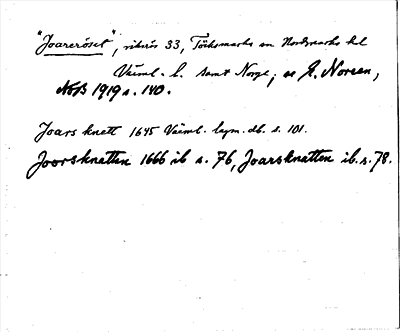 "Joareröset", riksrös 33, Töcksmarks sn Nordmarks hd
Värml. l. samt Norge; se E. Noreen,
NoB 1919 s. 140.
Joars knett 1645 Värml. lagm. db. s. 101.
Joorsknatten 1666 ib s. 76, Joarsknatten ib. s. 78.